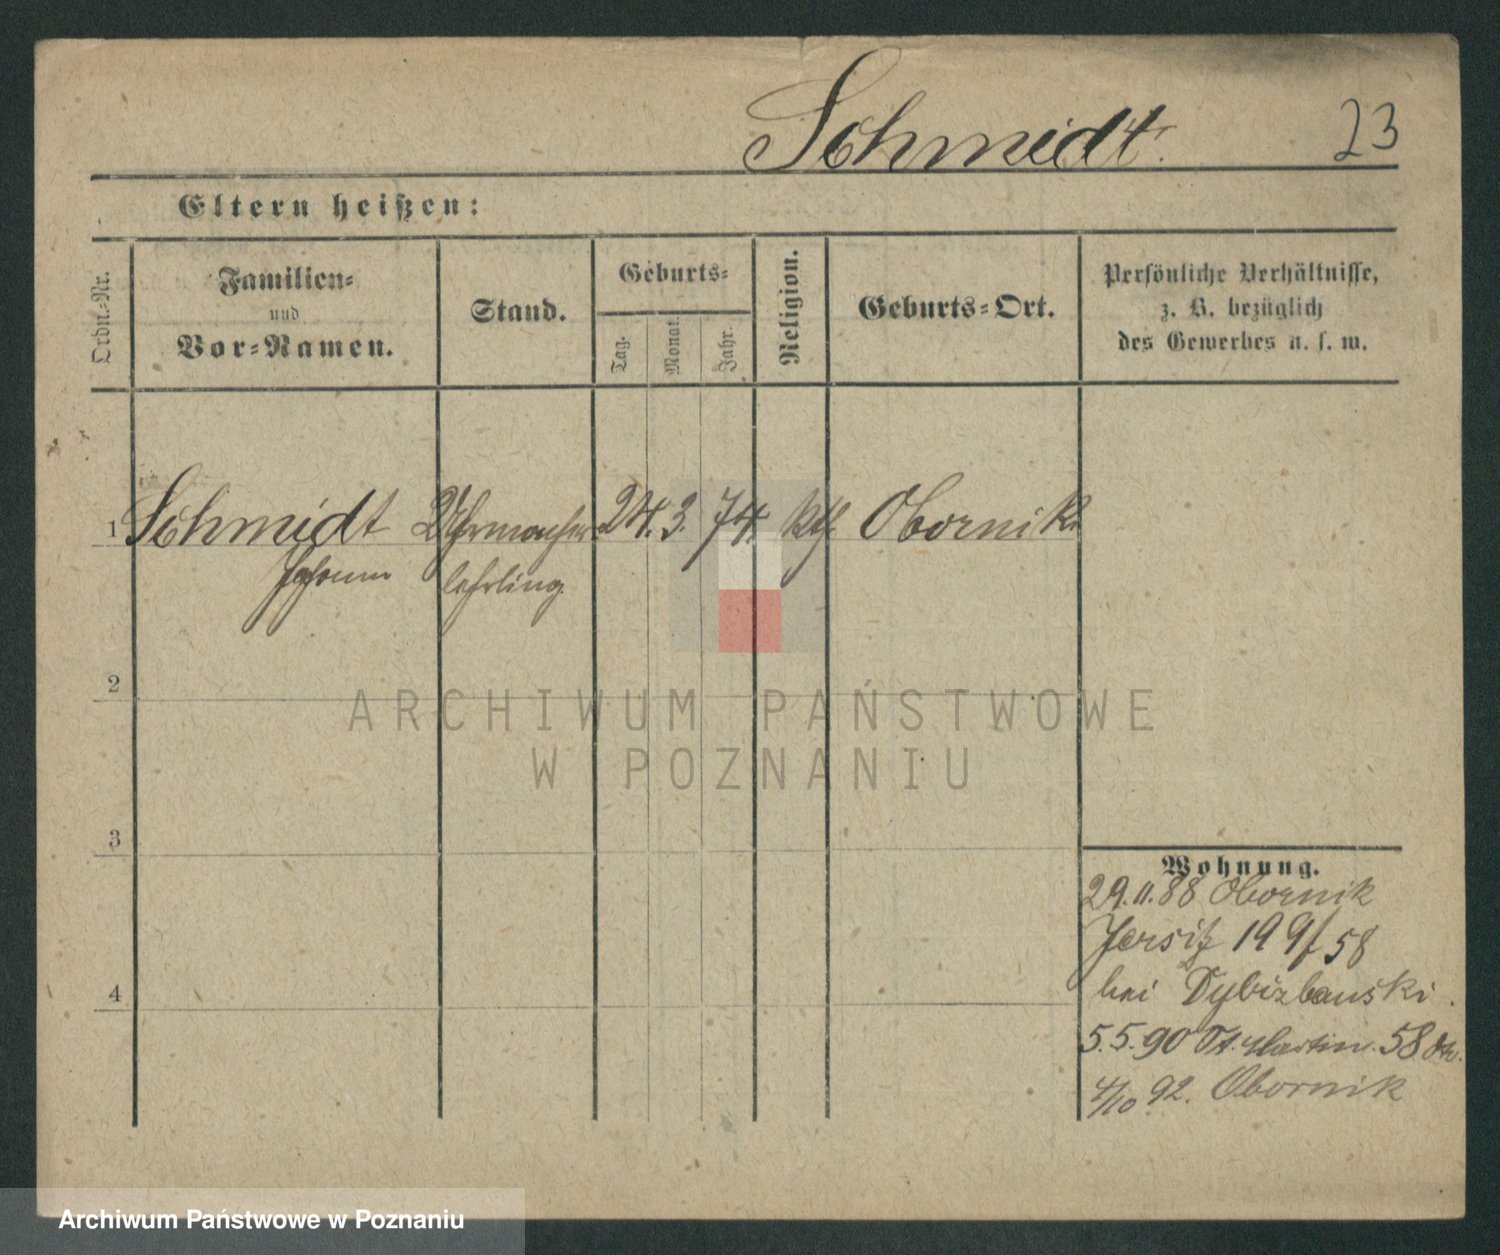 Schmidt.
23
Eltern heißen:
Ordn.-Nr.
Familien-
und
Vor-Namen.
Stand.
Geburts-
Tag.
Monat.
Jahr.
Religion.
Geburts-Ort.
Persönliche Verhältnisse,
z. B. bezüglich
des Gewerbes u. s. w.
1 Schmidt Uhrmacher 24. 3. 74. kth Obornik
Johann lehrling
2
ARCHIWUM PAŃSTWOWE
W POZNANIU
3
Wohnung.
29.11.88 Obornik
Jersitz 199/58
bei
4
5.5.90 St. Martin. 58
4/10 92. Obornik
Archiwum Państwowe w Poznaniu